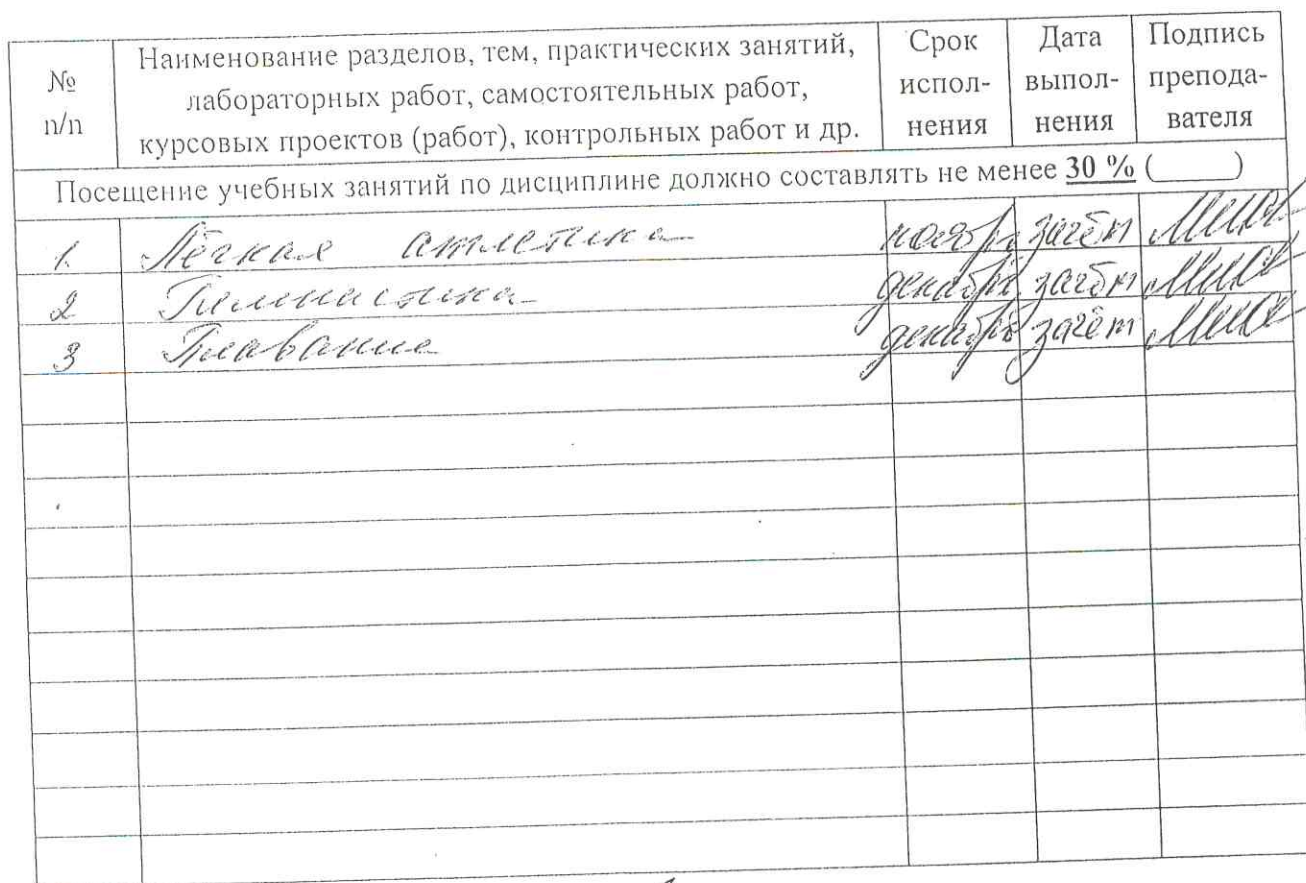 № п/п
Наименование разделов, тем, практических занятий,
лабораторных работ, самостоятельных работ,
курсовых проектов (работ), контрольных работ и др.
Срок испол-нения
Дата выпол-нения
Подпись препода-вателя
Посещение учебных занятий по дисциплине должно составлять не менее 30 % (______)
1. Лёгкая атлетика ноябрь зачёт
2 Гимнастика декабрь зачёт
3 Плавание декабрь зачёт